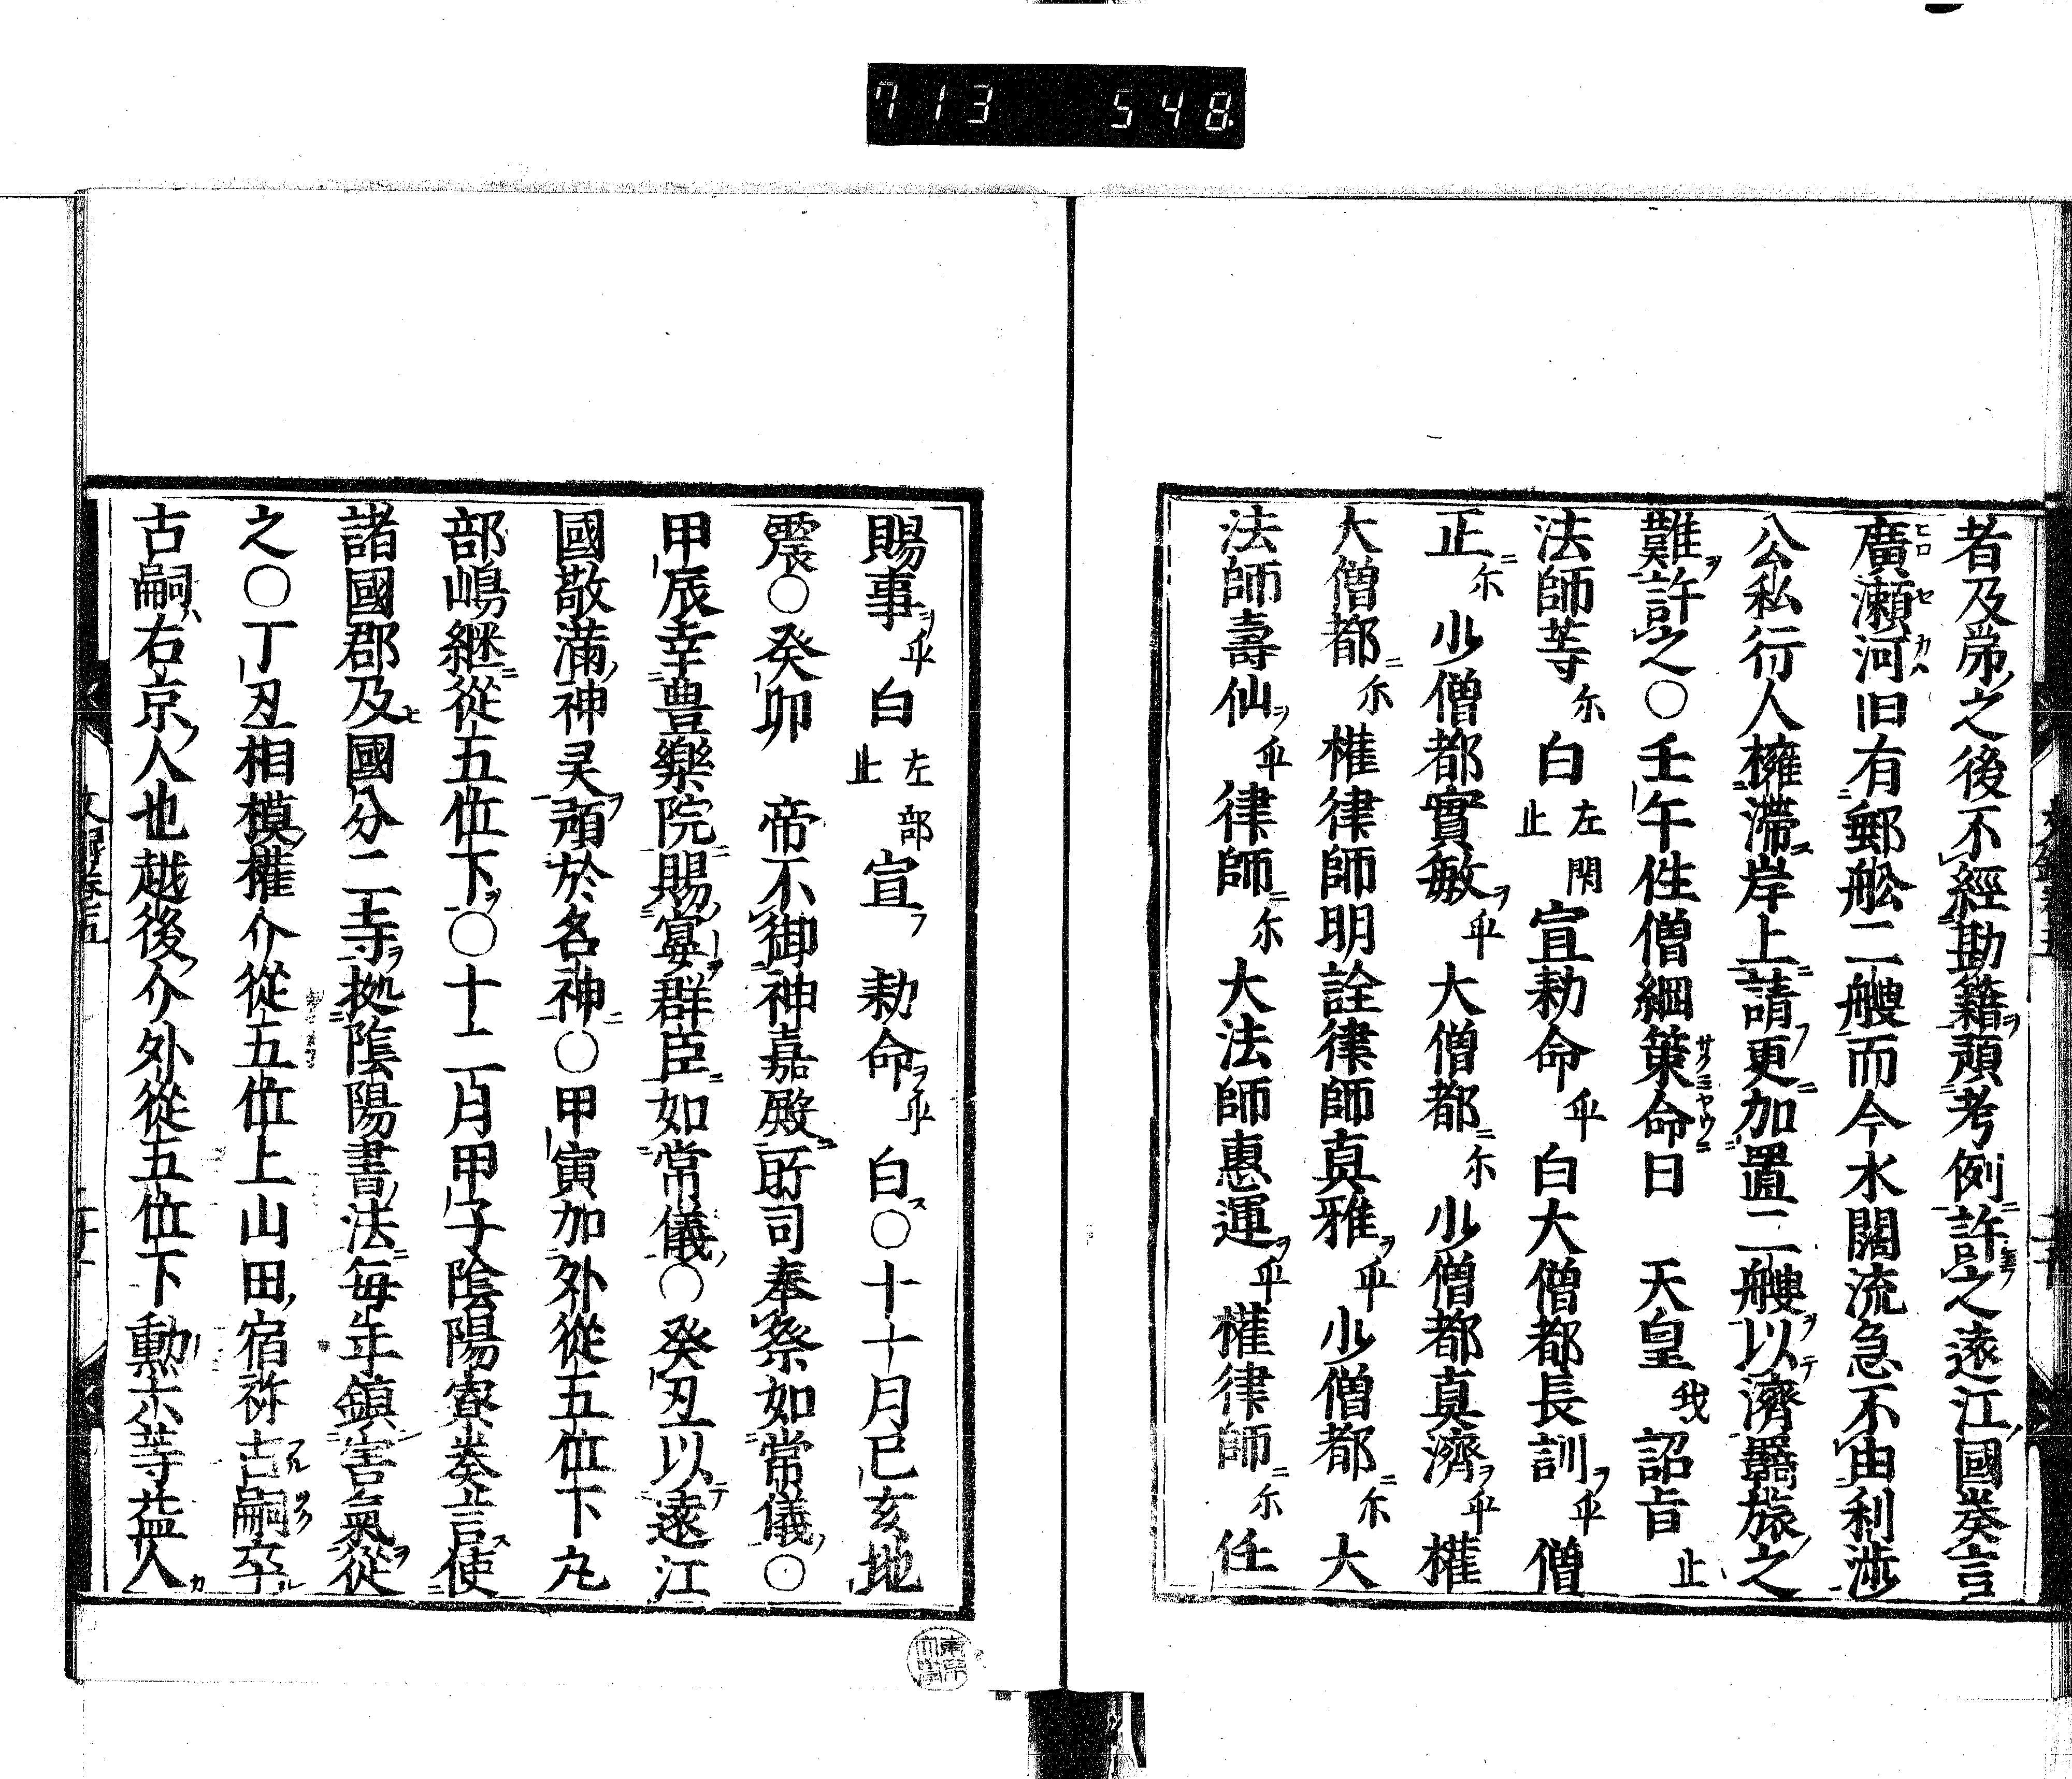 713 548
者及爲之後不經勘籍頑考例許之遠江國奏言
廣瀬河旧有郵舩二艘而今水闊流急不由利渉
公私行人擁滯岸上請更加置二艘以濟羈旅之
難許之〇壬午任僧綱策命曰 天皇我詔旨止
法師等尓白左閇止宣勅命乎白大僧都長訓乎僧
正尓少僧都實敏乎大僧都尓少僧都真濟乎權
大僧都尓權律師明詮律師真雅乎少僧都尓大
法師壽仙乎律師尓大法師惠運乎權律師尓任
賜事乎白左部止宣フ勅命乎白〇十一月己亥地
震〇癸卯 帝不御神嘉殿所司奉祭如常儀〇
甲辰幸豊樂院賜宴群臣如常儀〇癸丑以遠江
國敬滿神灵預於名神〇甲寅加外從五位下卆
部嶋継從五位下〇十二月甲子陰陽寮奏言使
諸國郡及國分二寺拠陰陽書法毎年鎮害氣從
之〇丁丑相模權介從五位上山田宿祢古嗣卒
古嗣右京人也越後介外從五位下勳六等益人